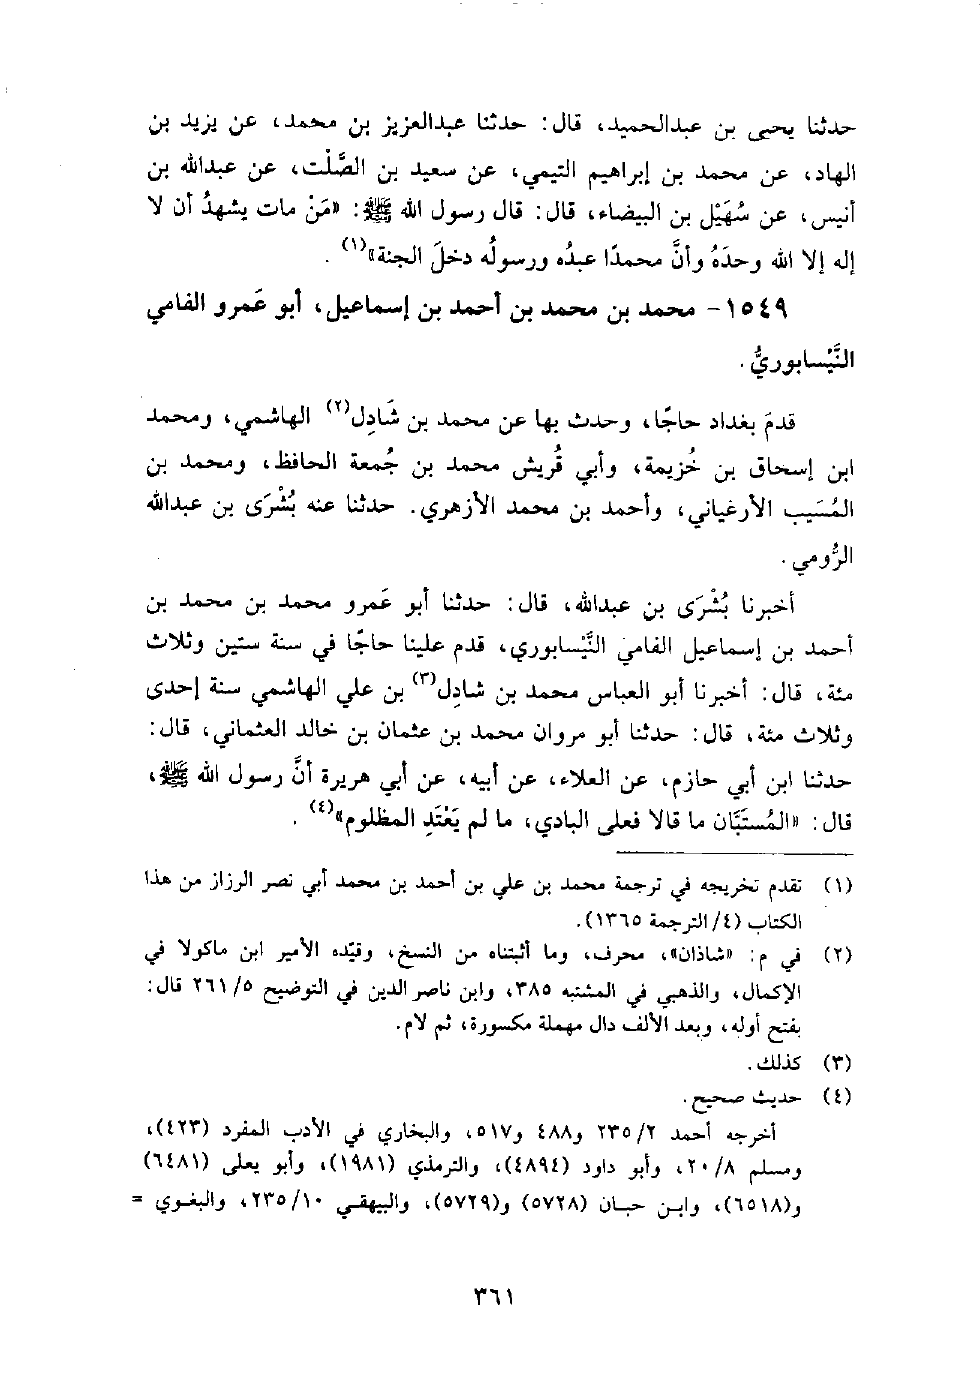 حدثنا يحيى بن عبدالحميد، قال: حدثنا عبدالعزيز بن محمد، عن يزيد بن
الهاد، عن محمد بن إبراهيم التيمي، عن سعيد بن الصَّلْت، عن عبدالله بن
أنيس، عن سُهَيْل بن البيضاء، قال: قال رسول الله ﷺ: «مَنْ مات يشهدُ أن لا
إله إلا الله وحدَهُ وأنَّ محمدًا عبدُه ورسولُه دخلَ الجنة»(١) .
١٥٤٩- محمد بن محمد بن أحمد بن إسماعيل، أبو عَمرو الفامي
النَّيْسابوريُّ .
قدمَ بغداد حاجًا، وحدث بها عن محمد بن شَادِل(٢) الهاشمي، ومحمد
ابن إسحاق بن خُزيمة، وأبي قُريش محمد بن جُمعة الحافظ، ومحمد بن
المُسَيب الأرغياني، وأحمد بن محمد الأزهري. حدثنا عنه بُشْرَى بن عبدالله
الرُّومي .
أخبرنا بُشْرَى بن عبدالله، قال: حدثنا أبو عَمرو محمد بن محمد بن
أحمد بن إسماعيل الفامي النَّيْسابوري، قدم علينا حاجًا في سنة ستين وثلاث
مئة، قال: أخبرنا أبو العباس محمد بن شادِل(٣) بن علي الهاشمي سنة إحدى
وثلاث مئة، قال: حدثنا أبو مروان محمد بن عثمان بن خالد العثماني، قال:
حدثنا ابن أبي حازم، عن العلاء، عن أبيه، عن أبي هريرة أنَّ رسول الله ﷺ،
قال: «المُستَبَّان ما قالا فعلى البادي، ما لم يَعْتَدِ المظلوم»(٤) .
(١) تقدم تخريجه في ترجمة محمد بن علي بن أحمد بن محمد أبي نصر الرزاز من هذا
الكتاب (٤/ الترجمة ١٣٦٥).
(٢) في م: «شاذان»، محرف، وما أثبتناه من النسخ، وقيّده الأمير ابن ماكولا في
الإكمال، والذهبي في المشتبه ٣٨٥، وابن ناصر الدين في التوضيح ٥/ ٢٦١ قال:
بفتح أوله، وبعد الألف دال مهملة مكسورة، ثم لام.
(٣) كذلك .
(٤) حديث صحيح .
أخرجه أحمد ٢/ ٢٣٥ و٤٨٨ و٥١٧، والبخاري في الأدب المفرد (٤٢٣)،
ومسلم ٨/ ٢٠، وأبو داود (٤٨٩٤)، والترمذي (١٩٨١)، وأبو يعلى (٦٤٨١)
و(٦٥١٨)، وابن حبان (٥٧٢٨) و(٥٧٢٩)، والبيهقي ١٠/ ٢٣٥، والبغوي =
٣٦١